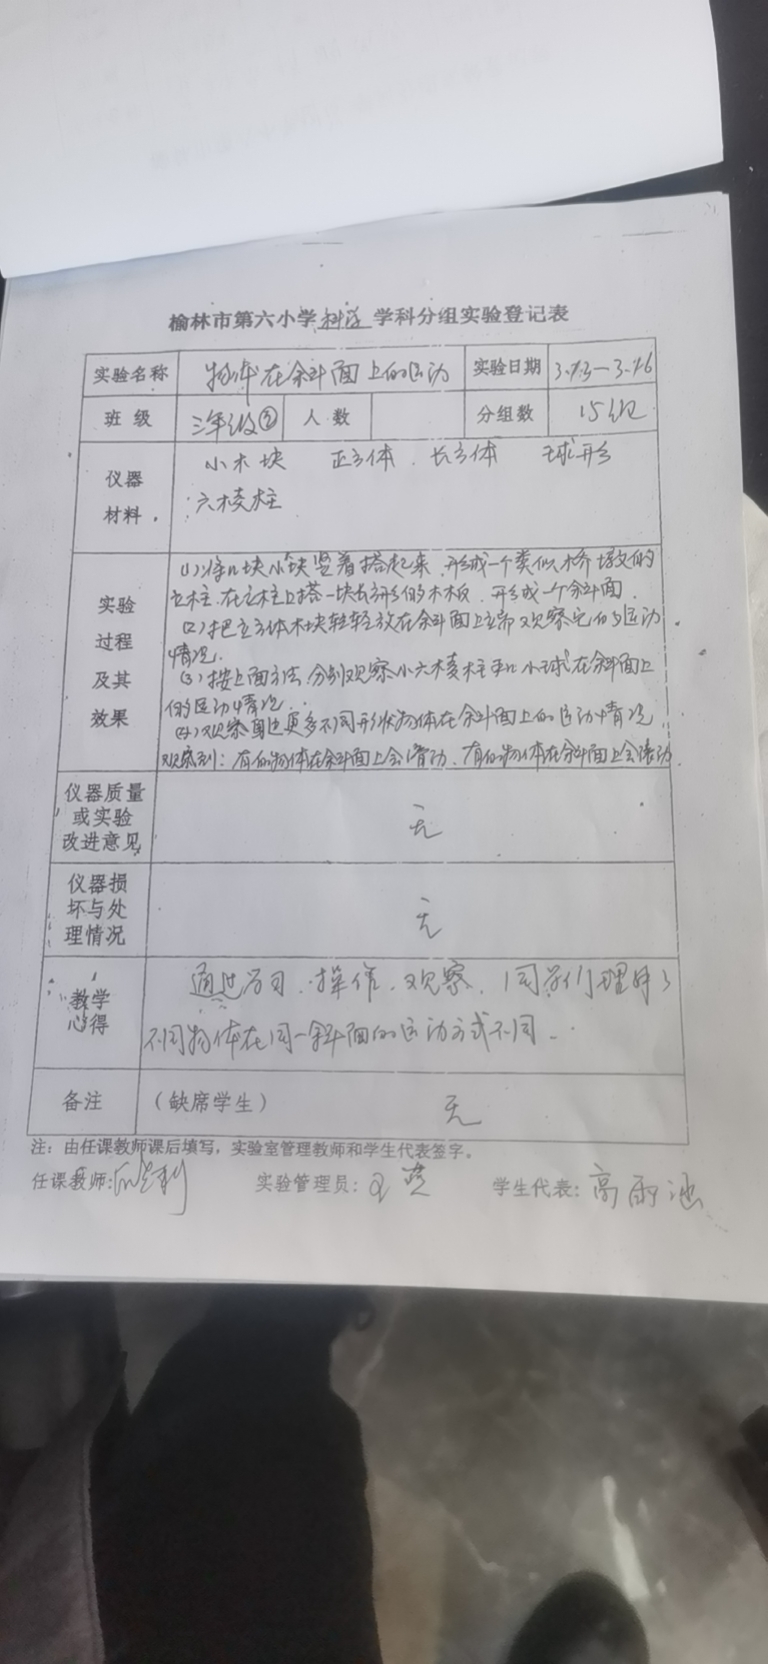 榆林市第六小学科学学科分组实验登记表
实验名称 物体在斜面上的运动 实验日期 3.13—3.16
班级 三年级② 人数 分组数 15组
仪器材料 小木块 正方体、长方体 球形
六棱柱
实验过程及其效果
(1)将几块小块竖着搭起来,形成一个类似桥墩的
立柱.在立柱上搭一块长形的木板,形成一个斜面.
(2)把立方体木块轻轻放在斜面上端观察它的运动
情况.
(3)按上面方法,分别观察小六棱柱和小球在斜面上
的运动情况.
(4)观察身边更多不同形状物体在斜面上的运动情况
观察到:有的物体在斜面上会滑动、有的物体在斜面上会滚动.
仪器质量或实验改进意见 无
仪器损坏与处理情况 无
教学心得 通过 操作、观察,同学们理解了
不同物体在同一斜面的运动方式不同.
备注 (缺席学生) 无
注:由任课教师课后填写,实验室管理教师和学生代表签字。
任课教师: 实验管理员:王 学生代表:高雨池